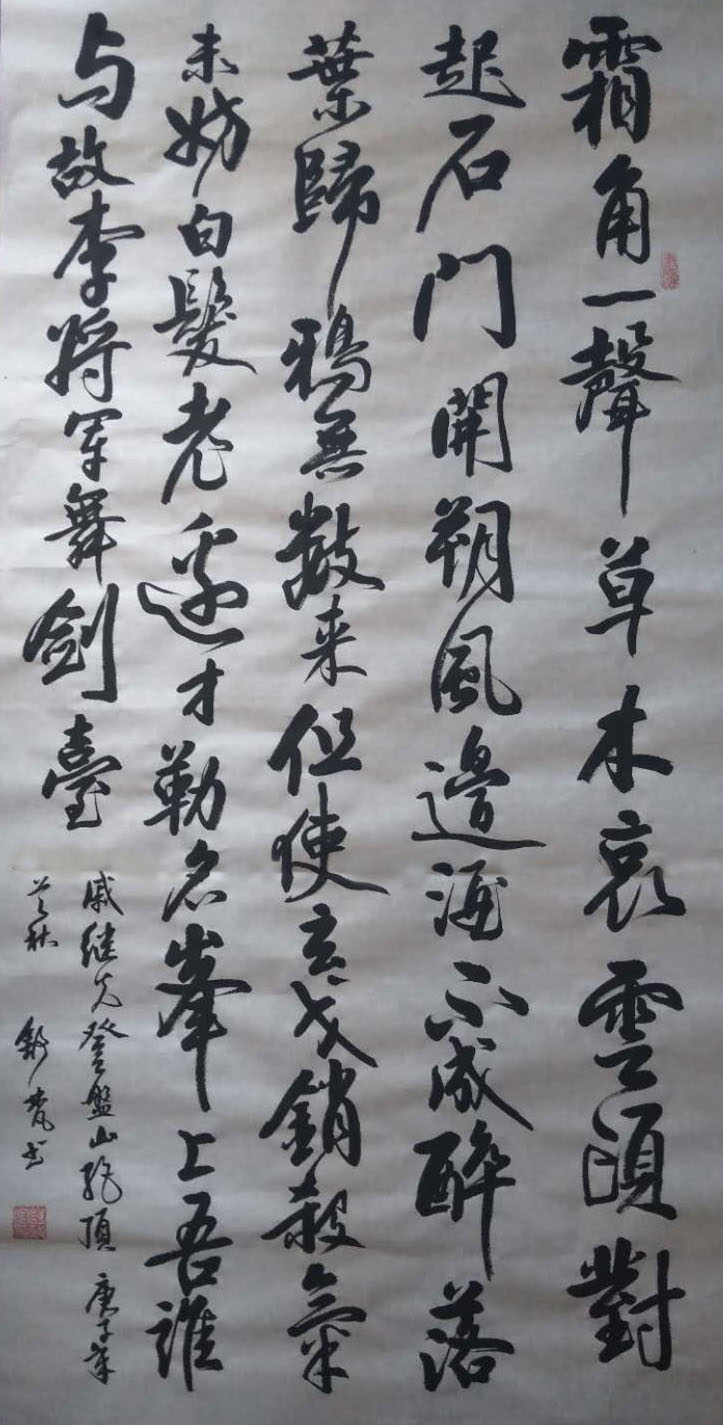 霜角一聲草木哀雲頭對
起石門開朔風邊酒不成醉落
葉歸鴉無數来但使玄戈銷殺氣
未妨白髮老邊才勒名峯上吾誰
与故李將軍舞劍臺
戚继光登盤山绝頂 庚子年
秋 书